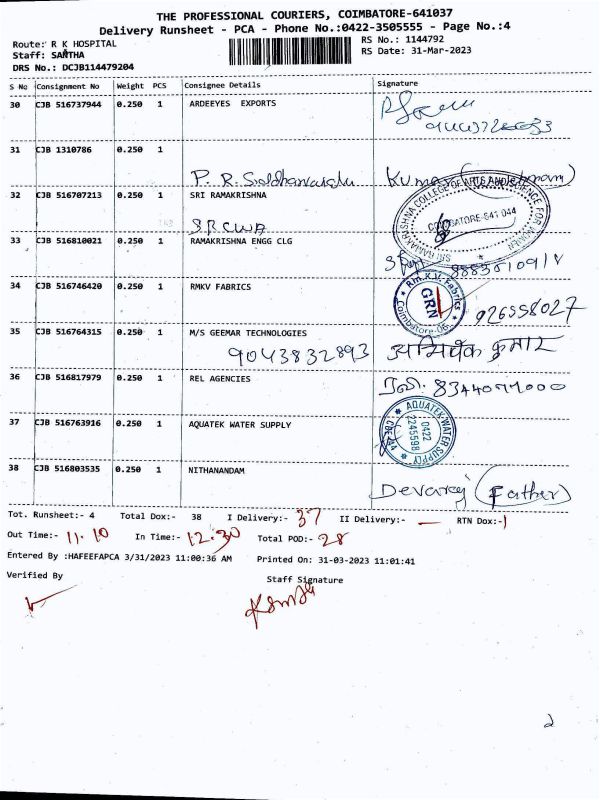 THE PROFESSIONAL COURIERS, COIMBATORE-641037
Delivery Runsheet - PCA - Phone No.:0422-3505555 - Page No.:4
Route: R K HOSPITAL
RS No.: 1144792
Staff: SARTHA
RS Date: 31-Mar-2023
DRS No.: DCJB114479204
S No Consignment No Weight PCS Consignee Details Signature
30 CJB 516737944 0.250 1 ARDEEYES EXPORTS
31 CJB 1310786 0.250 1
P. R. Siddharaidu Kumar
32 CJB 516707213 0.250 1 SRI RAMAKRISHNA
SRCWA
SRI RAMAKRISHNA COLLEGE OF ARTS AND SCIENCE FOR WOMEN
COIMBATORE-641 044
33 CJB 516810021 0.250 1 RAMAKRISHNA ENGG CLG
34 CJB 516746420 0.250 1 RMKV FABRICS
Rm.K.V.Fabrics
GRN
Coimbatore-06.
926558027
35 CJB 516764315 0.250 1 M/S GEEMAR TECHNOLOGIES
9043832893 अभिषेक कुमार
36 CJB 516817979 0.250 1 REL AGENCIES
8344077000
37 CJB 516763916 0.250 1 AQUATEK WATER SUPPLY
AQUATEK WATER SUPPLY
0422
2245598
38 CJB 516803535 0.250 1 NITHANANDAM
Devaraj (Father)
Tot. Runsheet:- 4 Total Dox:- 38 I Delivery:- 37 II Delivery:- — RTN Dox:-1
Out Time:- 11.10 In Time:- 12.30 Total POD:- 28
Entered By :HAFEEFAPCA 3/31/2023 11:00:36 AM Printed On: 31-03-2023 11:01:41
Verified By Staff Signature
2